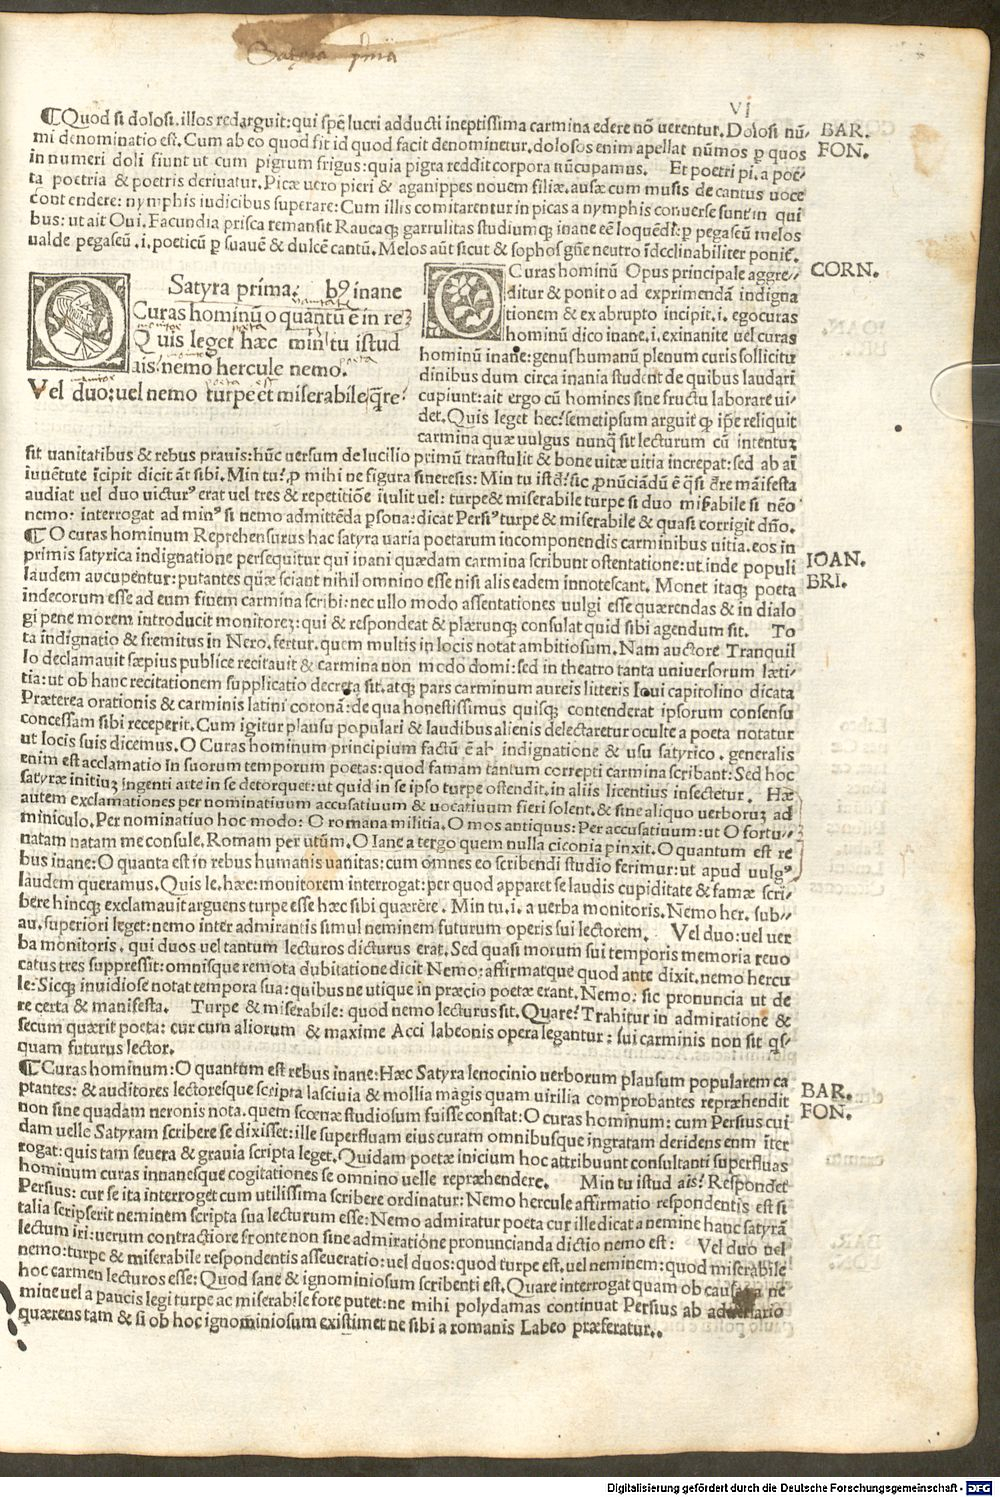 Satyra prima
VI
¶Quod si dolosi. illos redarguit: qui spē lucri adducti ineptissima carmina edere nō uerentur. Dolosi nū⸗
mi denominatio est. Cum ab eo quod fit id quod facit denominetur. dolosos enim apellat nūmos p quos
in numeri doli fiunt ut cum pigrum frigus: quia pigra reddit corpora nūcupamus. Et poetri pi. a poe⸗
ta poetria & poetris deriuatur. Picæ uero pieri & aganippes nouem filiæ. ausæ cum musis de cantus uoce
contendere: nymphis iudicibus superare: Cum illis comitarentur in picas a nymphis conuerse sunt in qui
bus: ut ait Oui. Facundia prisca remansit Raucaq; garrulitas studiumq; inane eē loquēdi: p pegaseū melos
ualde pegaseū. i. poeticū p suauē & dulcē cantū. Melos aūt sicut & sophos gn̄e neutro īdeclinabiliter ponit̄.
BAR.
FON.
Satyra prima. b9 inane
O Curas hominū o quantū ē in re
Quis leget hæc min tu istud
ais? nemo hercule nemo.
Vel duo: uel nemo turpe et miserabile q̄re?
CORN.
O Curas hominū Opus principale aggre⸗
ditur & ponit o ad exprimendā indigna
tionem & ex abrupto incipit. i. ego curas
hominū dico inane. i. exinanite uel curas
hominū inane: genus humanū plenum curis sollicitu
dinibus dum circa inania student de quibus laudari
cupiunt: ait ergo cū homines sine fructu laborare ui⸗
det. Quis leget hec? semetipsum arguit q; ip̄e reliquit
carmina quæ uulgus nunq̄ sit lecturum cū intentuꝫ
sit uanitatibus & rebus prauis: hūc uersum de lucilio primū transtulit & bone uitæ uitia increpat: sed ab aī
iuuētute īcipit dicit āt sibi. Min tu? p mihi ne figura sineresis: Min tu istd? sic pnūciādū ē q̄si dr̄e māifesta
audiat uel duo uictur9 erat uel tres & repetitiōe itulit uel: turpe & miserabile turpe si duo miserabile si neo
nemo: interrogat ad min9 si nemo admittēda psona: dicat Persi9 turpe & miserabile & quasi corrigit dn̄o.
¶O curas hominum Reprehensurus hac satyra uaria poetarum incomponendis carminibus uitia. eos in
primis satyrica indignatione persequitur qui inani quædam carmina scribunt ostentatione: ut inde populi
laudem aucupentur: putantes quæ sciant nihil omnino esse nisi aliis eadem innotescant. Monet itaq; poeta
indecorum esse ad eum finem carmina scribi: nec ullo modo assentationes uulgi esse quærendas & in dialo
gi pene morem introducit monitoreꝫ: qui & respondeat & plærunq; consulat quid sibi agendum sit. To
ta indignatio & fremitus in Nero. fertur. quem multis in locis notat ambitiosum. Nam auctore Tranquil
lo declamauit sæpius publice recitauit & carmina non modo domi: sed in theatro tanta uniuersorum læti⸗
tia: ut ob hanc recitationem supplicatio decreta sit. atq; pars carminum aureis litteris Ioui capitolino dicata
Præterea orationis & carminis latini coronā: de qua honestissimus quisq; contenderat ipsorum consensu
concessam sibi receperit. Cum igitur plausu populari & laudibus alienis delectaretur oculte a poeta notatur
ut locis suis dicemus. O Curas hominum principium factū ē ab indignatione & usu satyrico. generalis
enim est acclamatio in suorum temporum poetas: quod famam tantum correpti carmina scribant: Sed hoc
satyræ initiuꝫ ingenti arte in se detorquet: ut quid in se ipso turpe ostendit. in aliis licentius insectetur. Hæ
autem exclamationes per nominatiuum accusatiuum & uocatiuum fieri solent. & sine aliquo uerboruꝫ ad
miniculo. Per nominatiuo hoc modo: O romana militia. O mos antiquus: Per accusatiuum: ut O fortu⸗
natam natam me consule. Romam per utūm. O Iane a tergo quem nulla ciconia pinxit. O quantum est re
bus inane: O quanta est in rebus humanis uanitas: cum omnes eo scribendi studio ferimur: ut apud uulg9
laudem queramus. Quis le. hæc: monitorem interrogat: per quod apparet se laudis cupiditate & famæ scri⸗
bere hincq; exclamauit arguens turpe esse hæc sibi quærere. Min tu. i. a uerba monitoris. Nemo her. sub⸗
au. superiori leget: nemo inter admirantis simul neminem futurum operis sui lectorem. Vel duo: uel uer
ba monitoris. qui duos uel tantum lecturos dicturus erat. Sed quasi morum sui temporis memoria reuo
catus tres suppressit: omnisque remota dubitatione dicit Nemo: affirmatque quod ante dixit. nemo hercu
le: Sicq; inuidiose notat tempora sua: quibus ne utique in præcio poetæ erant. Nemo: sic pronuncia ut de
re certa & manifesta. Turpe & miserabile: quod nemo lecturus sit. Quare? Trahitur in admiratione &
secum quærit poeta: cur cum aliorum & maxime Acci labeonis opera legantur: sui carminis non sit qs⸗
quam futurus lector.
IOAN.
BRI.
¶Curas hominum: O quantum est rebus inane: Hæc Satyra lenocinio uerborum plausum popularem ca
ptantes: & auditores lectoresque scripta lasciuia & mollia magis quam uirilia comprobantes repræhendit
non sine quadam neronis nota. quem scœnæ studiosum fuisse constat: O curas hominum: cum Persius cui
dam uelle Satyram scribere se dixisset: ille superfluam eius curam omnibusque ingratam deridens eum īter
rogat: quis tam seuera & grauia scripta leget. Quidam poetæ inicium hoc attribuunt consultanti superfluas
hominum curas innanesque cogitationes se omnino uelle repræhendere. Min tu istud ais? Respondet
Persius: cur se ita interroget cum utilissima scribere ordinatur: Nemo hercule affirmatio respondentis est si
talia scripserit neminem scripta sua lecturum esse: Nemo admiratur poeta cur ille dicat a nemine hanc satyrā
lectum iri: uerum contractiore fronte non sine admiratione pronuncianda dictio nemo est: Vel duo uel
nemo: turpe & miserabile respondentis asseueratio: uel duos: quod turpe est. uel neminem: quod miserabile
hoc carmen lecturos esse: Quod sane & ignominiosum scribenti est. Quare interrogat quam ob causam a ne
mine uel a paucis legi turpe ac miserabile fore putet: ne mihi polydamas continuat Persius ab aduersario
quærens tam & si ob hoc ignominiosum existimet ne sibi a romanis Labeo præferatur.
BAR.
FON.
Digitalisierung gefördert durch die Deutsche Forschungsgemeinschaft - DFG